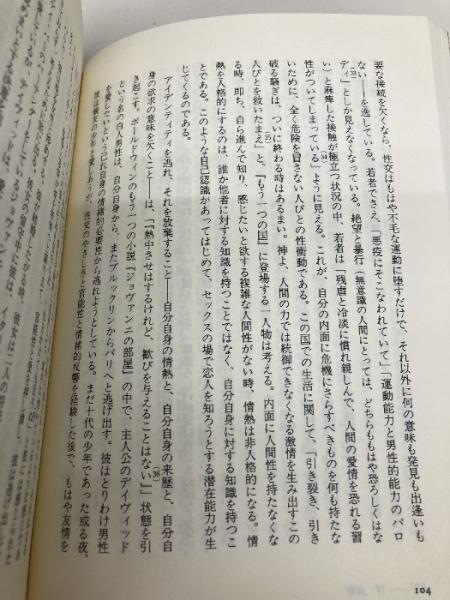 要な接続を欠くなら、性交はもはや不毛な運動に堕すだけで、それ以外に何の意味も発見も出逢いも
ない――を逸している。若者でさえ、「悪疫にそこなわれていて」「運動能力と男性的能力のパロ
ディ」(33)としか見えなくなっている。絶望と暴行(無意識の人間にとっては、どちらももはや恐ろしくはな
い)と麻痺した接触が極立つ状況の中、若者は「残虐と冷淡に慣れ親しんで、人間の愛情を恐れる習
性がついてしまっている」(34)ように見える。これが、自分の内面に危機にさらすべきものを何も持たな
いために、全く危険を冒さない人びととの性衝動である。この国での生活に関して、「引き裂き、引き
破る騒ぎは、ついに終わる時はあるまい。神よ、人間の力では統御できなくなる激情を生み出すこの
人びとを救いたまえ」(35)と、『もう一つの国』に登場する一人物は考える。内面に人間性を持たなくな
る時、即ち、自ら進んで知り、感じたいと欲する複雑な人間性がない時、情熱は非人格的になる。情
熱を人格的にするのは、誰か他者に対する知識を持つことではなく、自分自身に対する知識を持つこ
とである。このような自己認識があってはじめて、セックスの場で恋人を知ろうとする潜在能力が生
じてくるのである。
アイデンティティを逃れ、それを放棄すること――自分自身の情熱と、自分自身の来歴と、自分自
身の欲求の意味を欠くこと――は、「『熱中させはするけれど、歓びを与えることはない』」(36)状態を引
き起こす。ボールドウィンのもう一つの小説『ジョヴァンニの部屋』の中で、主人公のデイヴィッド
という名の白人男性は、自分自身から、またブルックリンからパリへと逃げ出す。彼はとりわけ男性
を愛したいという己れ自身の情緒的必要性から逃れようとしている。まだ十代の少年であった或る夜、
彼は親友の少年を愛し
性交のやさしさと官能性と情緒的反響を経験した後で、もはや友情を
104